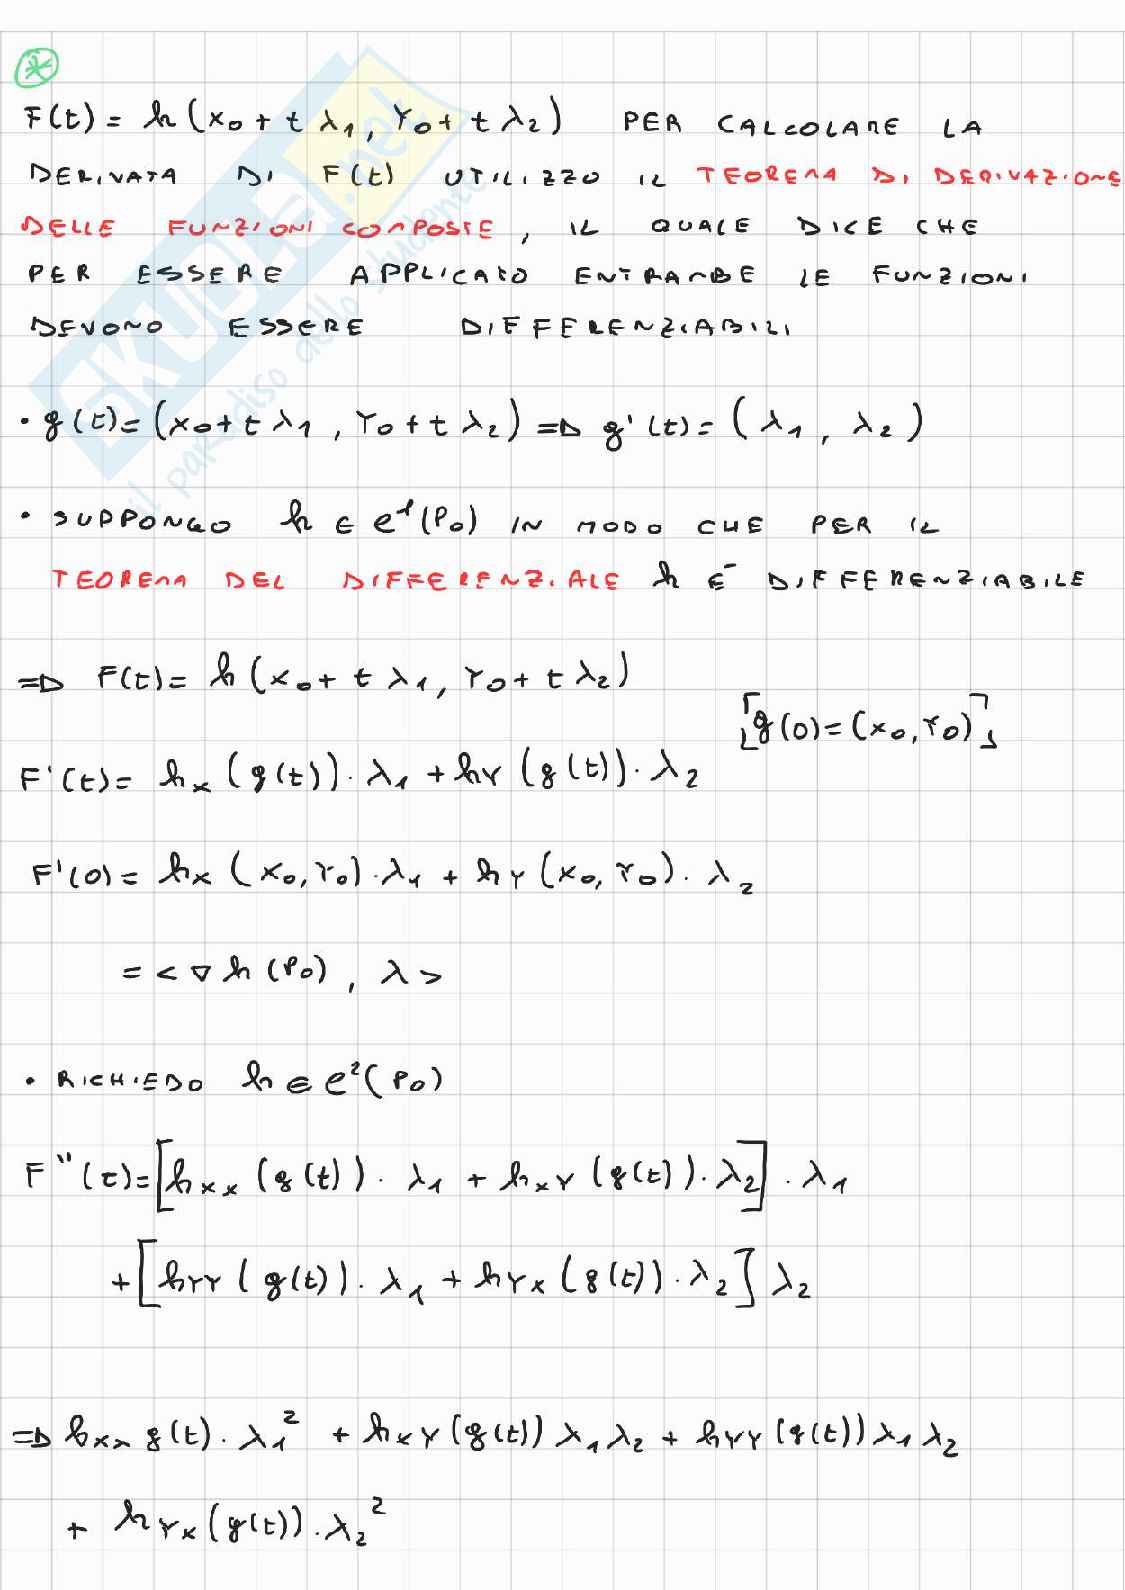 F(t) = h(x₀ + tλ₁, Y₀ + tλ₂) PER CALCOLARE LA
DERIVATA DI F(t) UTILIZZO IL TEOREMA DI DERIVAZIONE
DELLE FUNZIONI COMPOSTE, IL QUALE DICE CHE
PER ESSERE APPLICATO ENTRAMBE LE FUNZIONI
DEVONO ESSERE DIFFERENZIABILI
• g(t) = (x₀ + tλ₁, Y₀ + tλ₂) ⇒ g'(t) = (λ₁, λ₂)
• SUPPONGO h ∈ C¹(P₀) IN MODO CHE PER IL
TEOREMA DEL DIFFERENZIALE h È DIFFERENZIABILE
⇒ F(t) = h(x₀ + tλ₁, Y₀ + tλ₂)
[g(0) = (x₀, Y₀)]
F'(t) = hₓ(g(t)) · λ₁ + hY(g(t)) · λ₂
F'(0) = hₓ(x₀, Y₀) · λ₁ + hY(x₀, Y₀) · λ₂
= <∇h(P₀), λ>
• RICHIEDO h ∈ C²(P₀)
F''(t) = [hₓₓ(g(t)) · λ₁ + hₓY(g(t)) · λ₂] · λ₁
+ [hYY(g(t)) · λ₁ + hYₓ(g(t)) · λ₂] λ₂
⇒ hₓₓ g(t) · λ₁² + hₓY(g(t)) λ₁λ₂ + hYY(g(t)) λ₁λ₂
+ hYₓ(g(t)) · λ₂²
SKUOLA.net
il paradiso dello studente